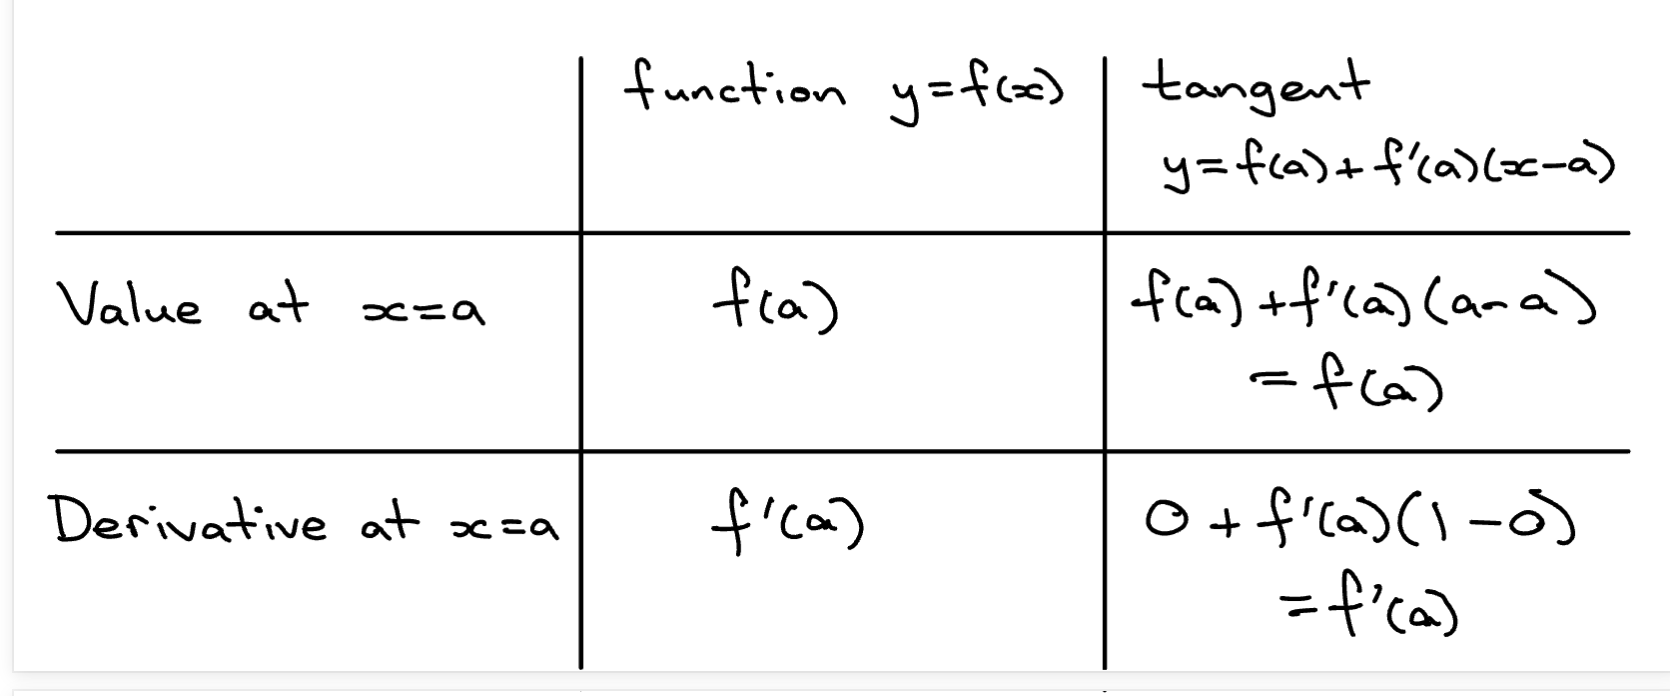 function y=f(x)
tangent
y=f(a)+f'(a)(x-a)
Value at x=a
f(a)
f(a)+f'(a)(a-a)
=f(a)
Derivative at x=a
f'(a)
0+f'(a)(1-0)
=f'(a)